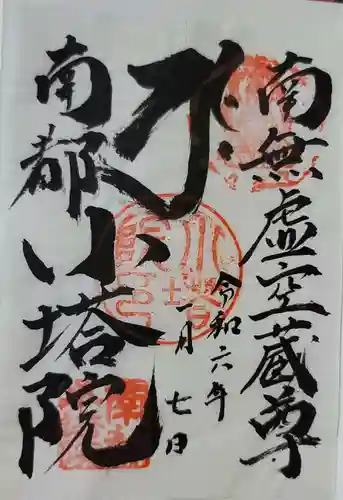 南無虚空蔵尊
令和六年
一月七日
南都小塔院